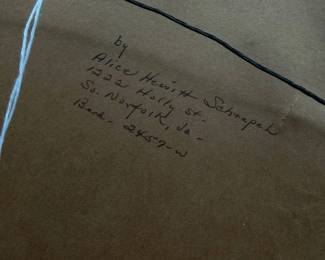 by
Alice Hewitt Schrapel
1222 Holly St.
So. Norfolk, Va-
2457-W